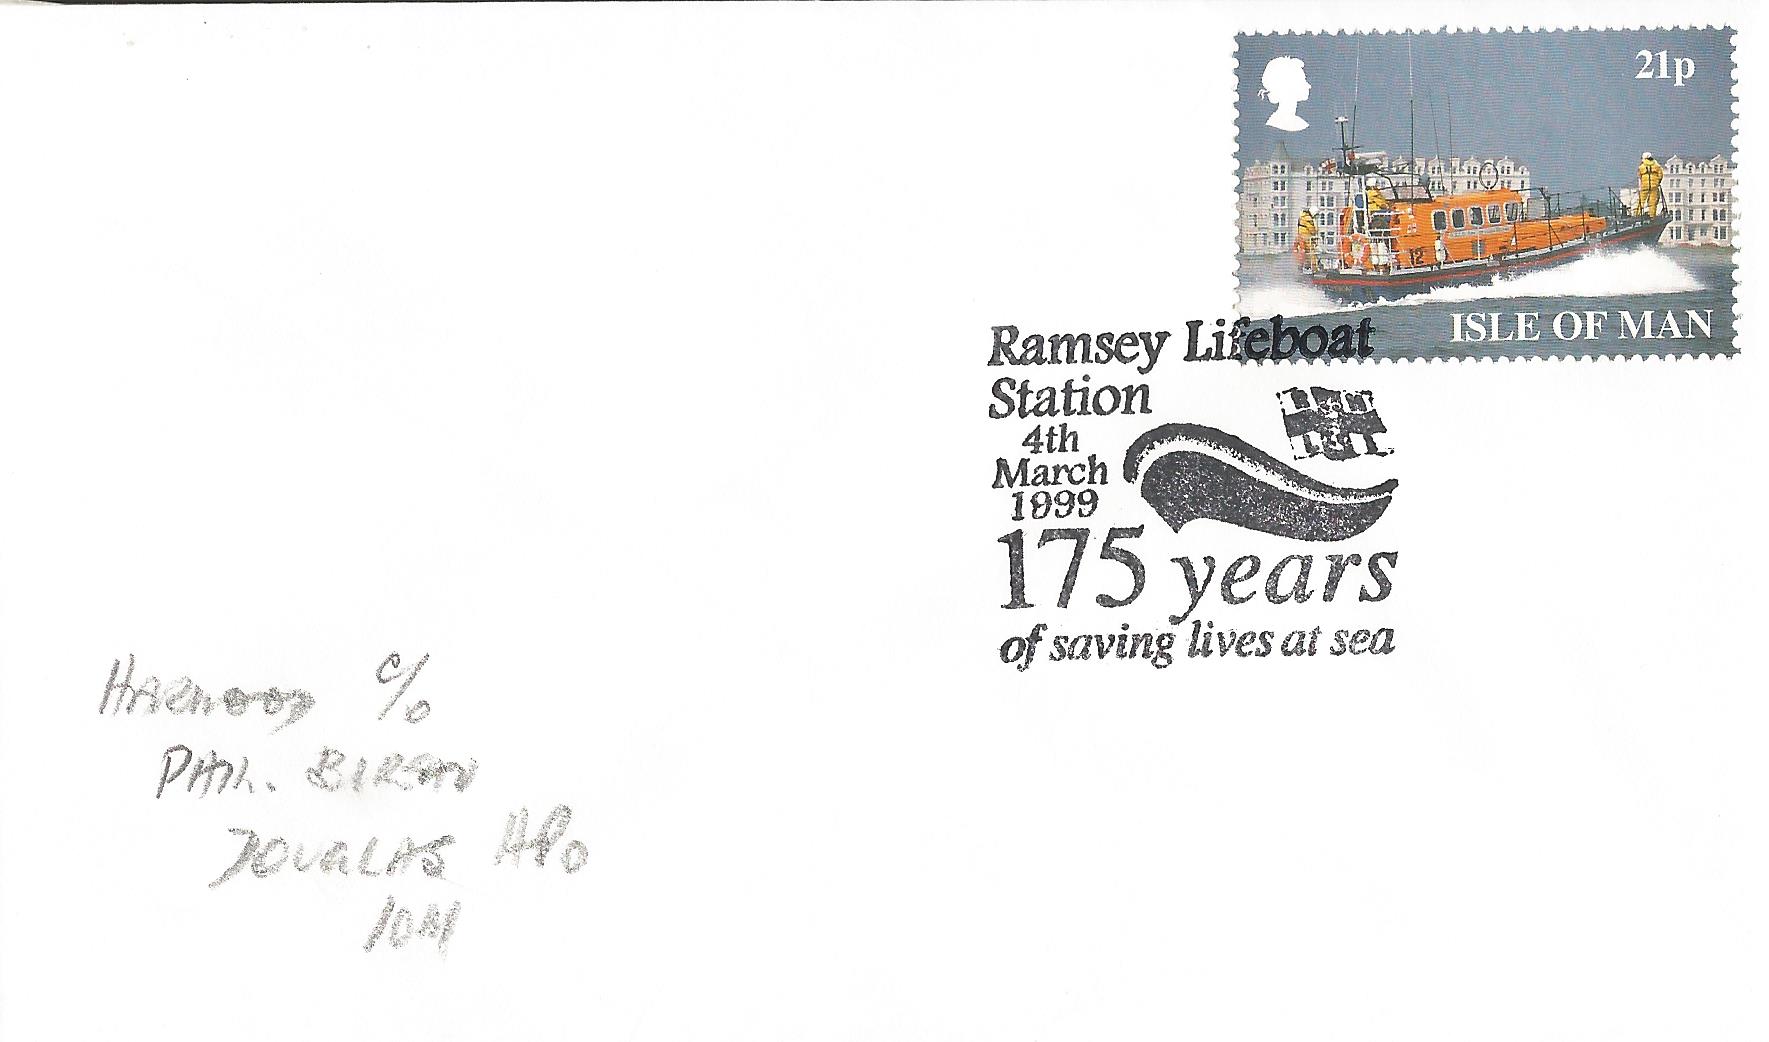 21p
ISLE OF MAN
Ramsey Lifeboat
Station
4th
March
1999
RNLI
175 years
of saving lives at sea
HARWOOD c/o
PHIL. BUREAU
DOUGLAS HPO
IOM